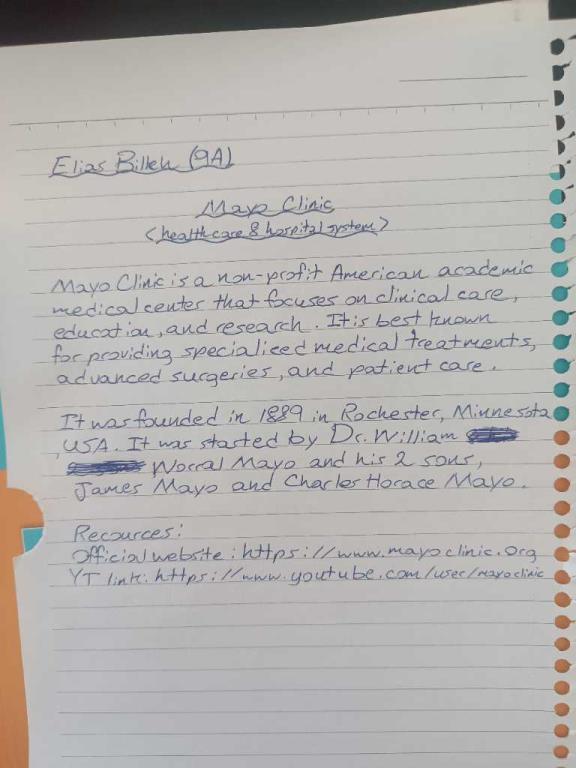 Elias Billeh (9A)
Mayo Clinic
(healthcare & hospital system)
Mayo Clinic is a non-profit American academic
medical center that focuses on clinical care,
education, and research. It is best known
for providing specialiced medical treatments,
advanced surgeries, and patient care.
It was founded in 1889 in Rochester, Minnesota
, USA. It was started by Dr. William
Worral Mayo and his 2 sons,
James Mayo and Charles Horace Mayo.
Recources:
Official website: https://www.mayoclinic.org
YT link: https://www.youtube.com/user/mayoclinic